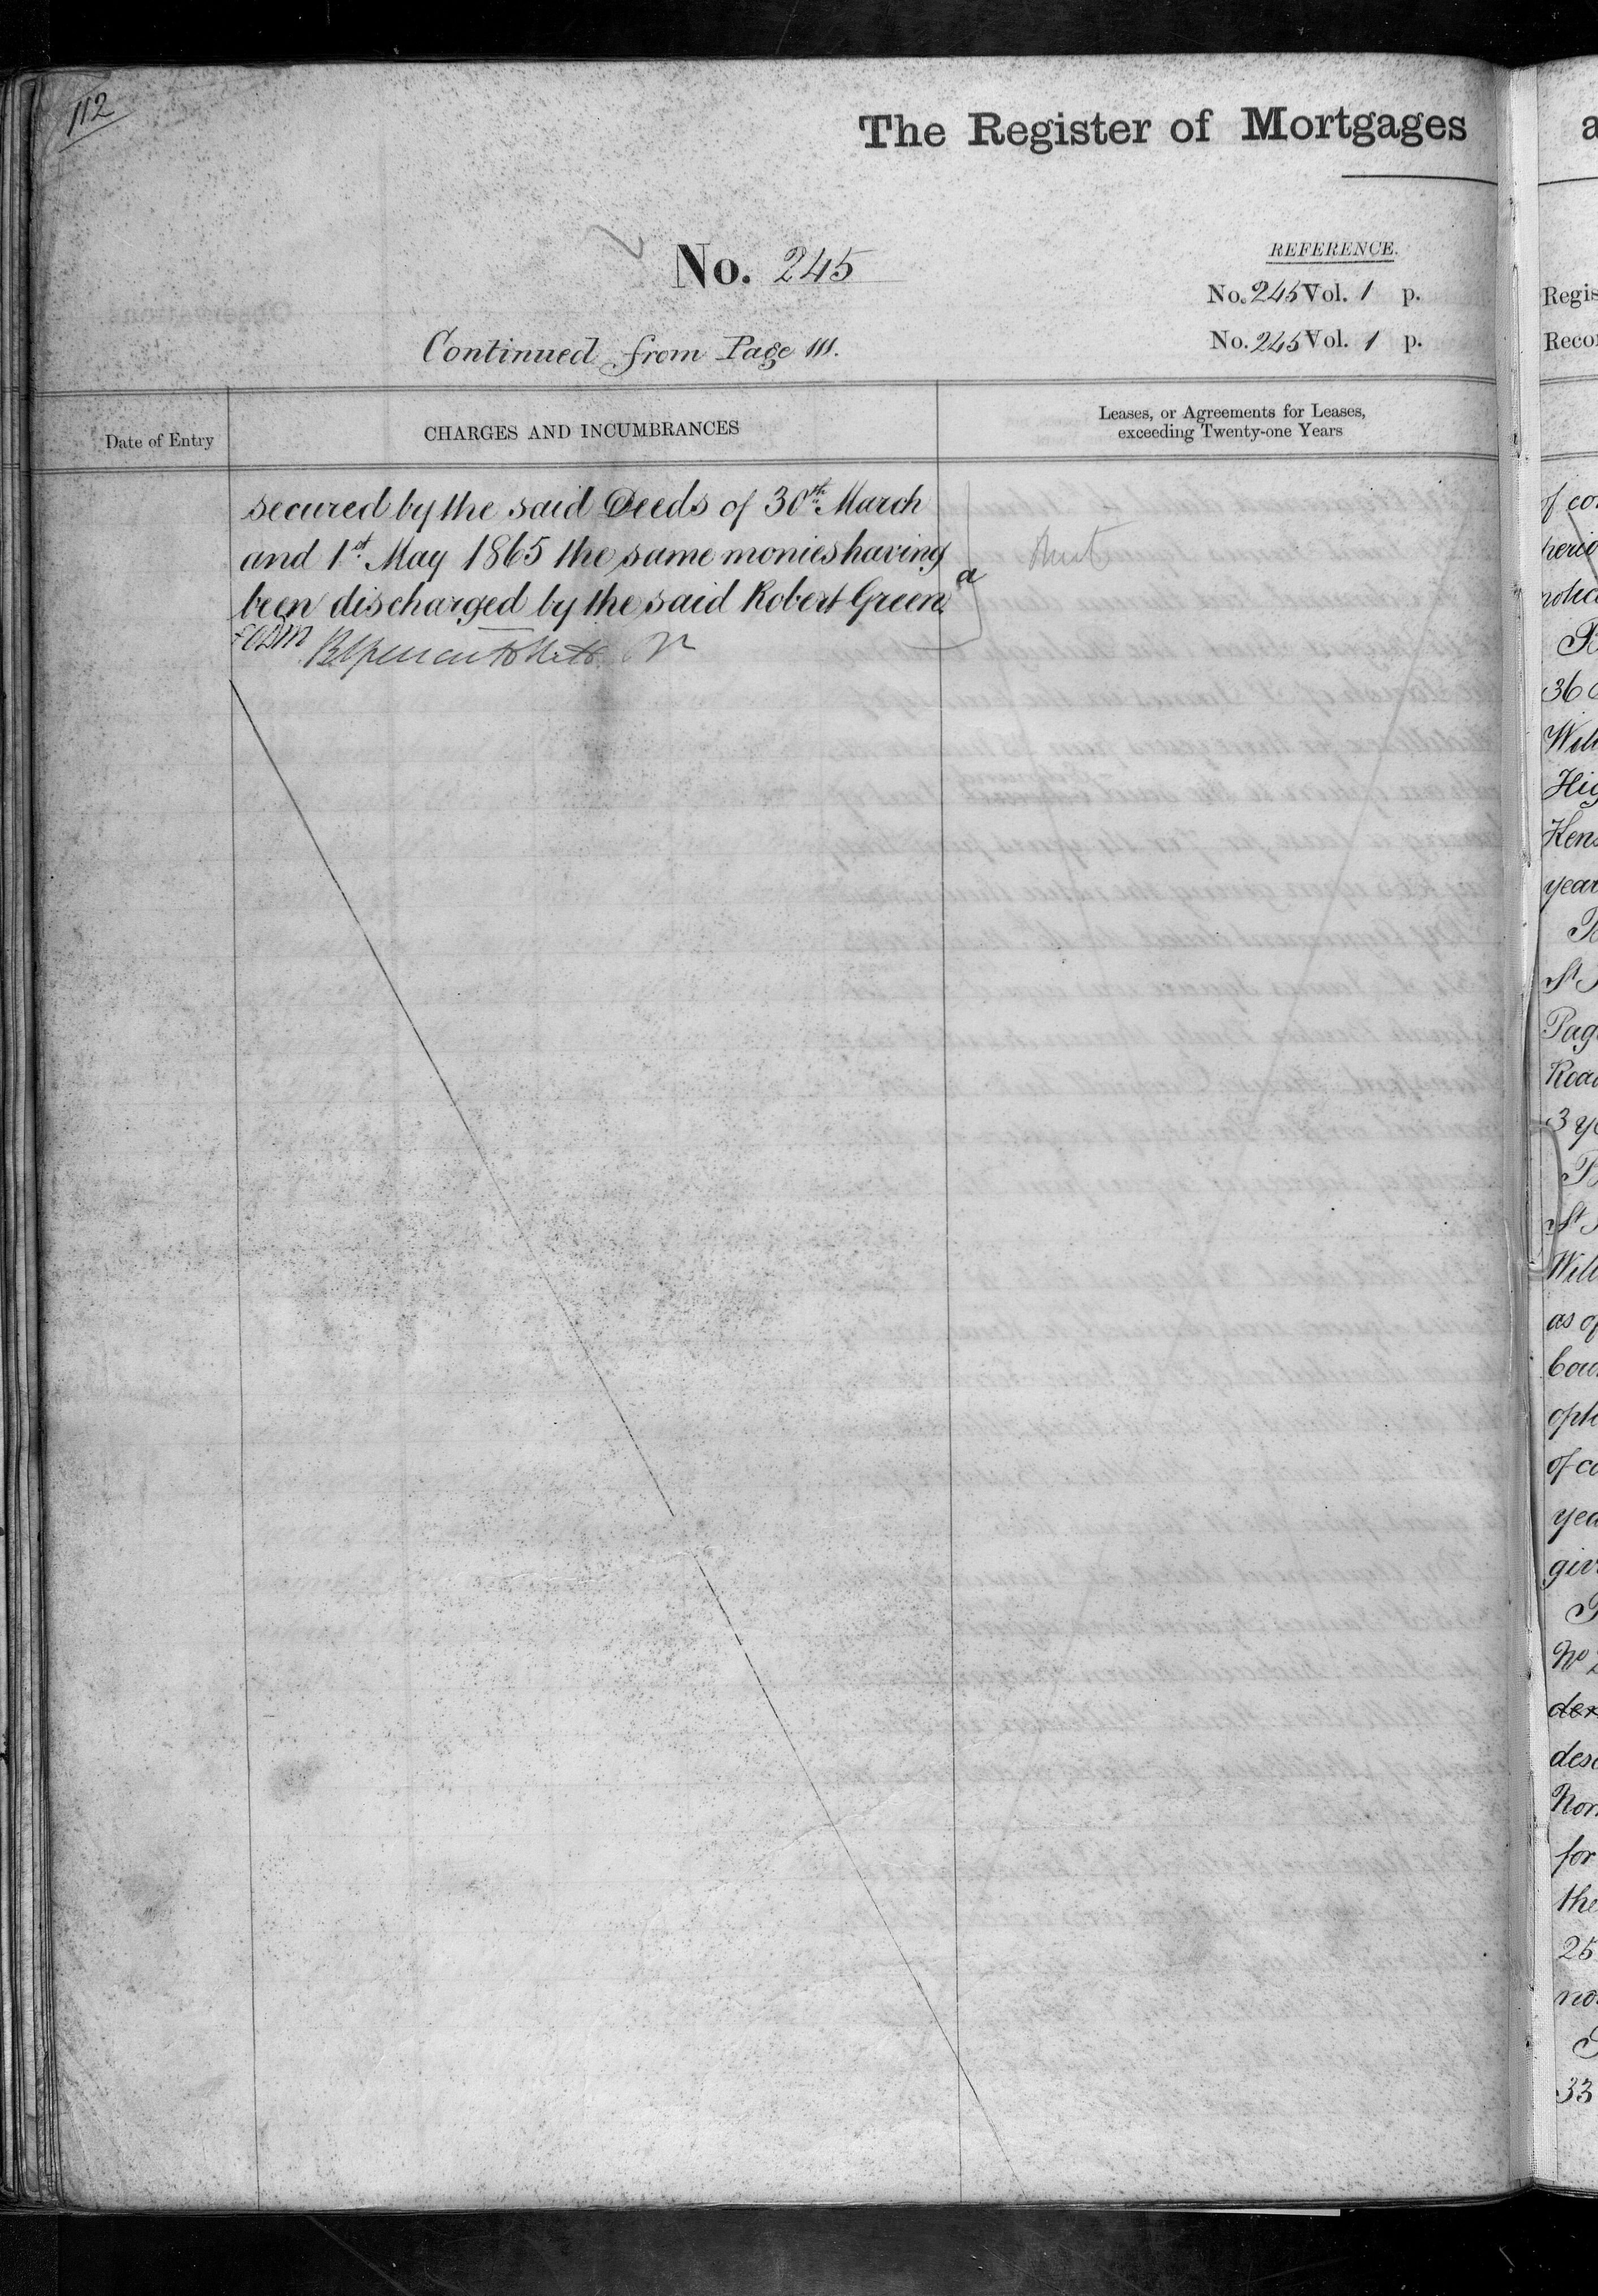 112
The Register of Mortgages
No. 245
REFERENCE.
No. 245 Vol. 1 p.
No. 245 Vol. 1 p.
Continued from Page 111.
Date of Entry
CHARGES AND INCUMBRANCES
Leases, or Agreements for Leases,
exceeding Twenty-one Years
secured by the said Deeds of 30th March
and 1st May 1865 the same monies having
been discharged by the said Robert Green.
a
Regis
Recor
of co
perio
notice
36
Will
Hig
Kens
year
St
Pag
Road
3 ye
St
Will
as of
Cou
opti
of co
yea
giv
No 2
der
desc
Nor
for
the
25
no
33